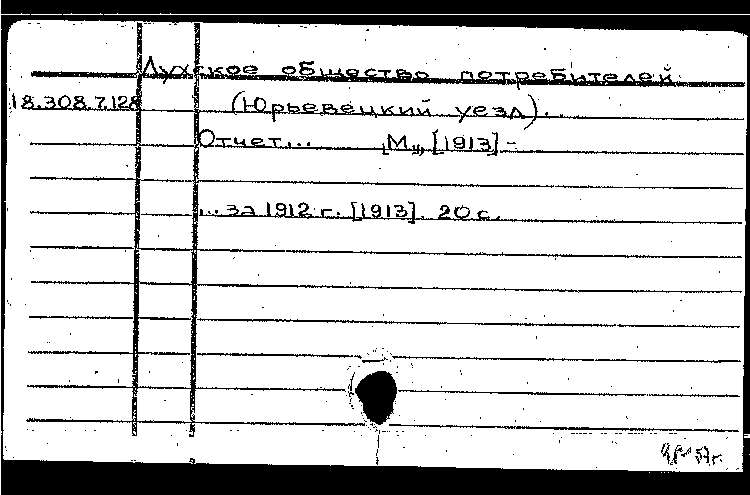 Лухское общество потребителей
18.308.7.128 (Юрьевецкий уезд)...
Отчет... [М.], [1913] -
... за 1912 г. [1913]. 20 с.
57 г.